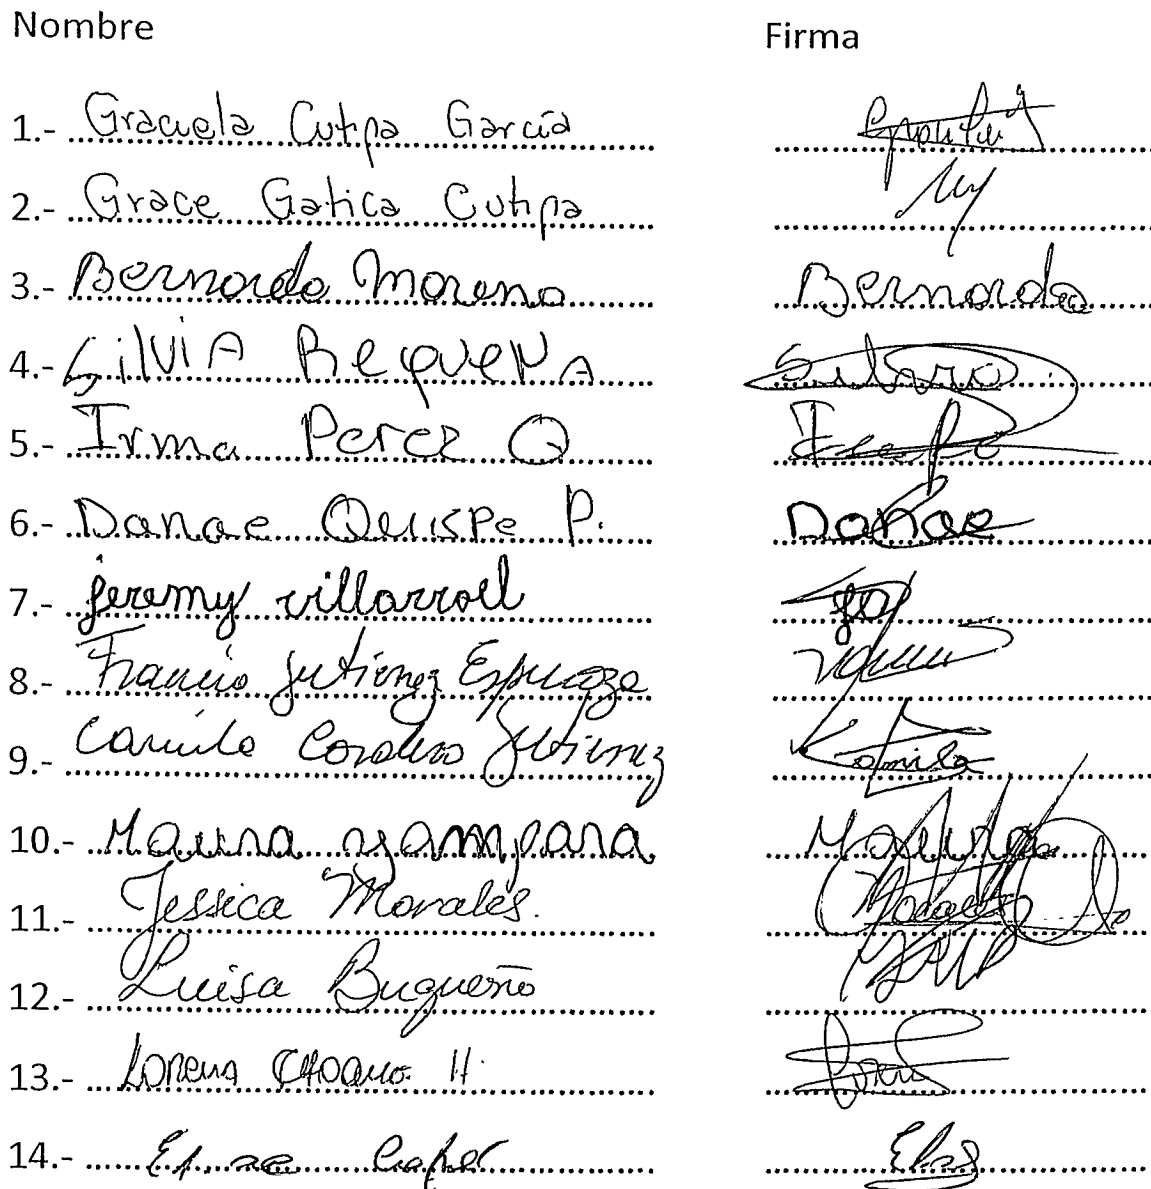 Nombre Firma
1.- Graciela Cutipa García
2.- Grace Gatica Cutipa
3.- Bernarda Moreno Bernarda
4.- SilViA RequeNA
5.- Irma Perez Q
6.- Danae Quispe P. Danae
7.- jeremy villarroel
8.- Gutiérrez Espinoza
9.- Camila Cordero Gutierrez Kamila
10.- Maura yampara Maura
11.- Jessica Morales.
12.- Luisa Bugueño
13.- Lorena H.
14.-